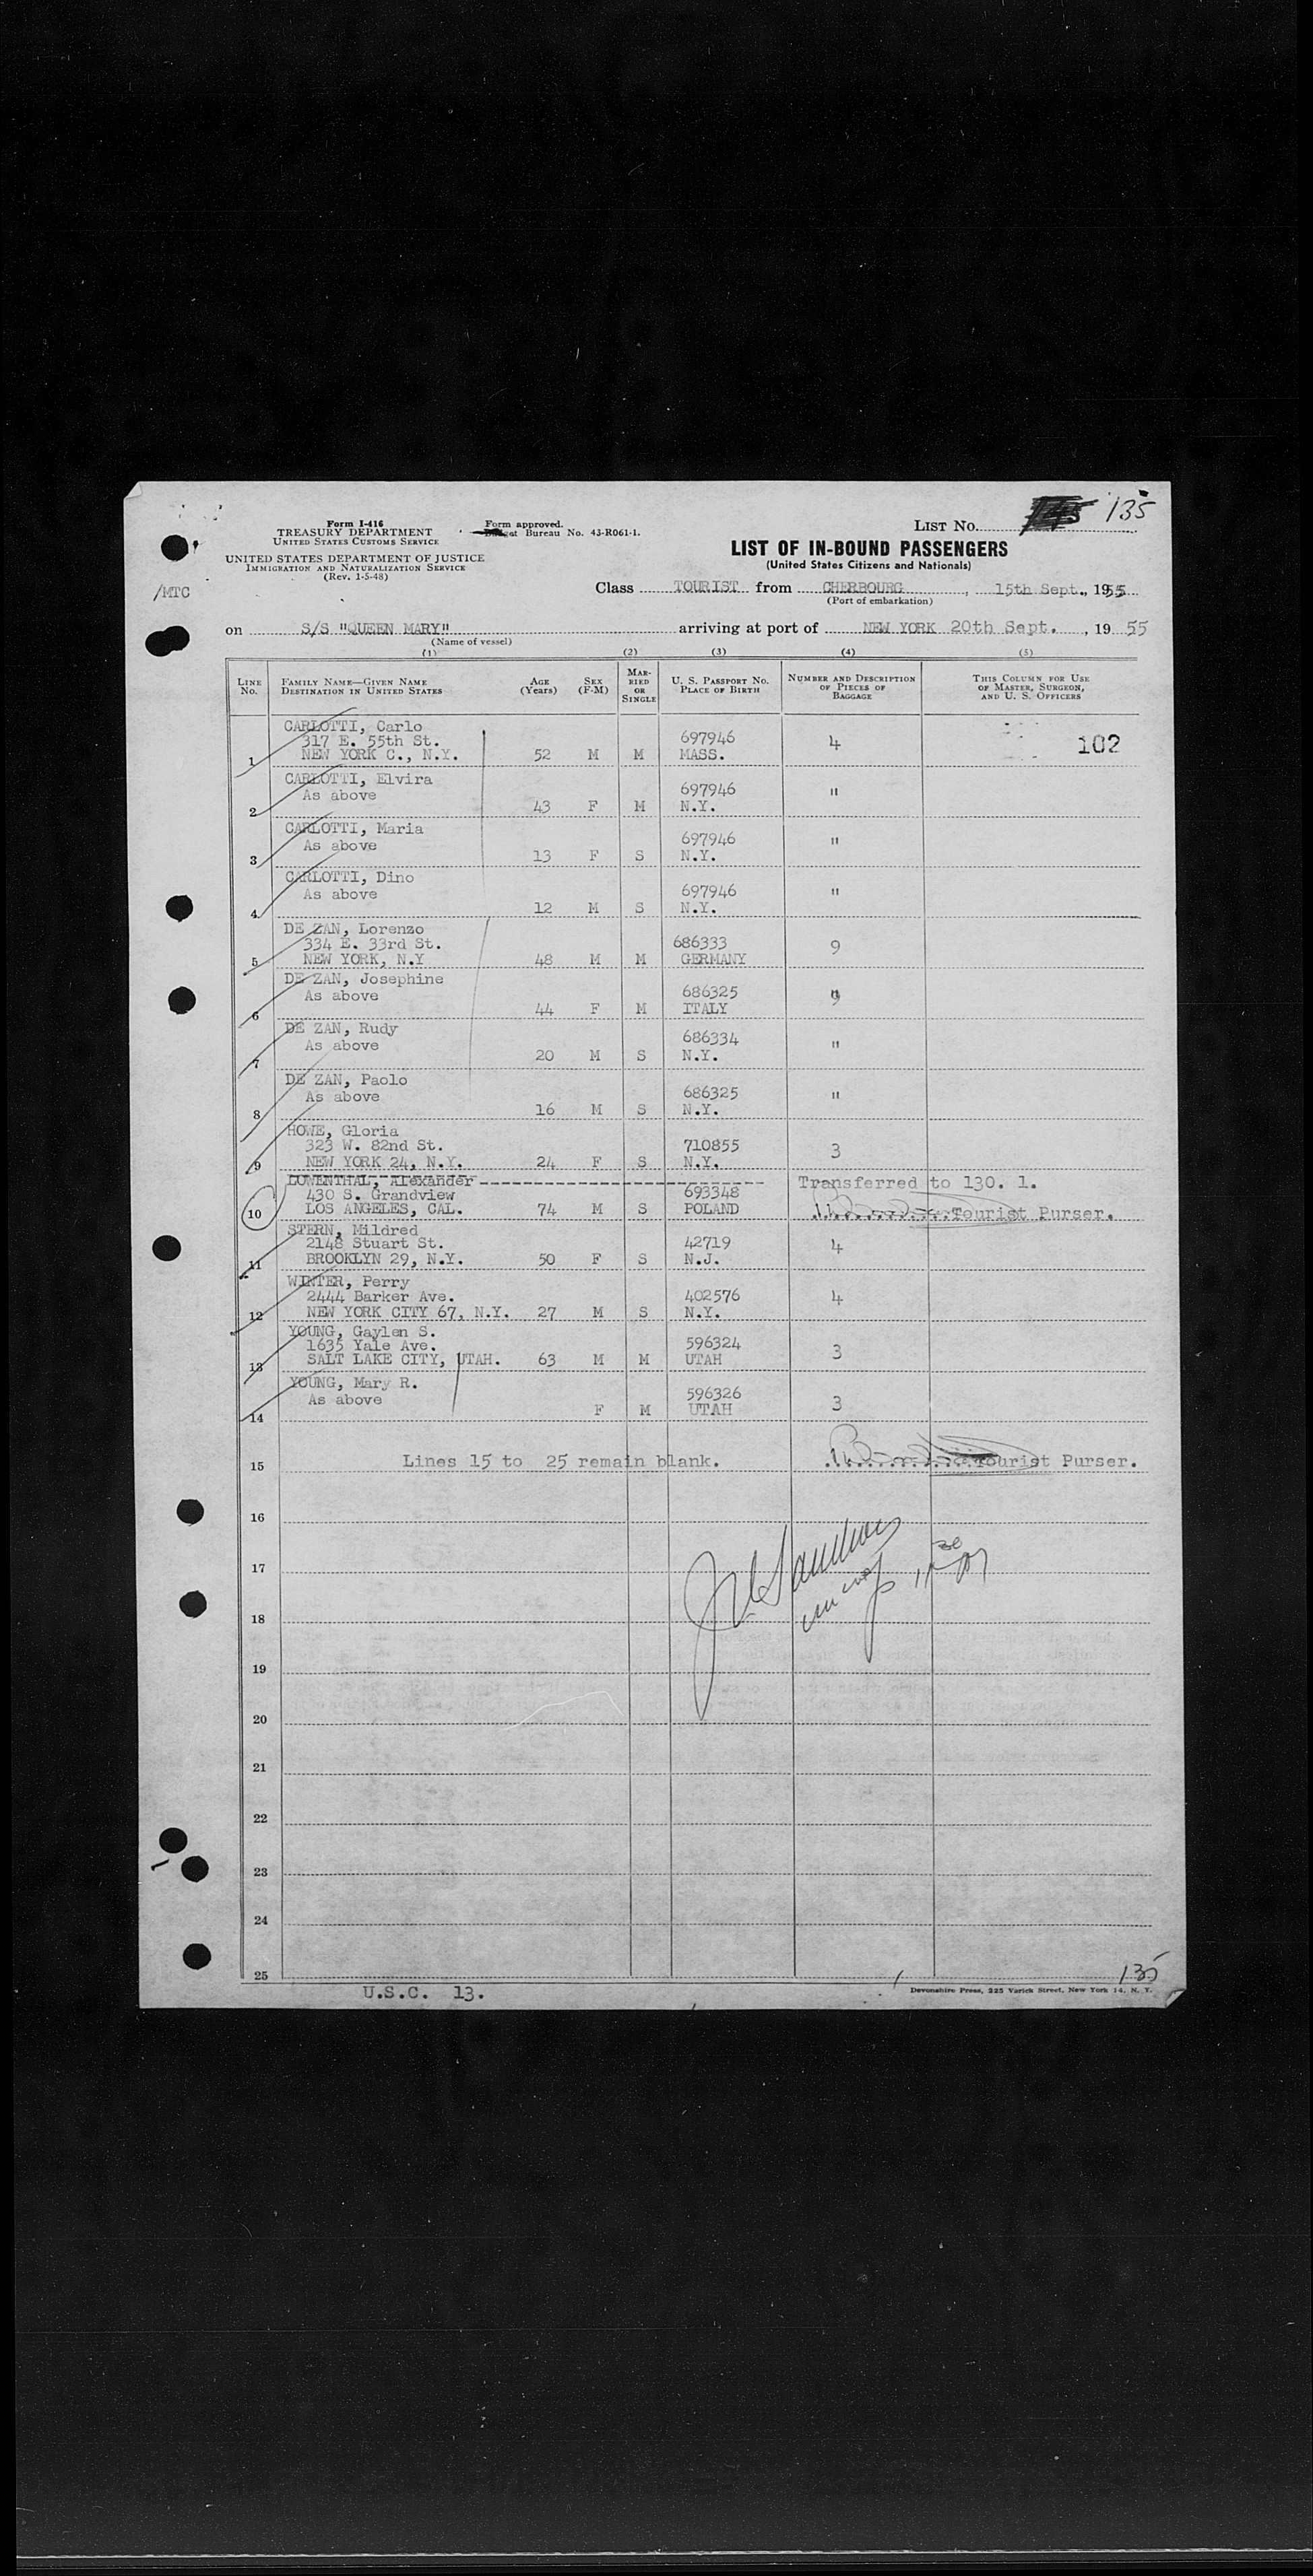 135
LIST No.
Form I-416
TREASURY DEPARTMENT
UNITED STATES CUSTOMS SERVICE
Form approved.
Bureau No. 43-R061-1.
UNITED STATES DEPARTMENT OF JUSTICE
IMMIGRATION AND NATURALIZATION SERVICE
(Rev. 1-5-48)
LIST OF IN-BOUND PASSENGERS
(United States Citizens and Nationals)
/MTC
Class TOURIST from CHERBOURG, 15th Sept., 1955
(Port of embarkation)
on S/S "QUEEN MARY" arriving at port of NEW YORK 20th Sept., 1955
(Name of vessel)
(1) (2) (3) (4) (5)
LINE No. FAMILY NAME—GIVEN NAME DESTINATION IN UNITED STATES AGE (Years) SEX (F-M) MARRIED OR SINGLE U. S. PASSPORT NO. PLACE OF BIRTH NUMBER AND DESCRIPTION OF PIECES OF BAGGAGE THIS COLUMN FOR USE OF MASTER, SURGEON, AND U. S. OFFICERS
CARLOTTI, Carlo
317 E. 55th St. 697946 4 102
1 NEW YORK C., N.Y. 52 M M MASS.
CARLOTTI, Elvira
As above 697946 "
2 43 F M N.Y.
CARLOTTI, Maria
As above 697946 "
3 13 F S N.Y.
CARLOTTI, Dino
As above 697946 "
4 12 M S N.Y.
DE ZAN, Lorenzo
334 E. 33rd St. 686333 9
5 NEW YORK, N.Y 48 M M GERMANY
DE ZAN, Josephine
As above 686325
6 44 F M ITALY
DE ZAN, Rudy
As above 686334 "
7 20 M S N.Y.
DE ZAN, Paolo
As above 686325 "
8 16 M S N.Y.
HOWE, Gloria
323 W. 82nd St. 710855 3
9 NEW YORK 24, N.Y. 24 F S N.Y.
LOWENTHAL, Alexander Transferred to 130. 1.
430 S. Grandview 693348
10 LOS ANGELES, CAL. 74 M S POLAND Tourist Purser.
STERN, Mildred
2148 Stuart St. 42719 4
11 BROOKLYN 29, N.Y. 50 F S N.J.
WINTER, Perry
2444 Barker Ave. 402576 4
12 NEW YORK CITY 67, N.Y. 27 M S N.Y.
YOUNG, Gaylen S.
1635 Yale Ave. 596324 3
13 SALT LAKE CITY, UTAH. 63 M M UTAH
YOUNG, Mary R.
As above 596326 3
14 F M UTAH
15 Lines 15 to 25 remain blank. Tourist Purser.
16
17
18
19
20
21
22
23
24
25
135
U.S.C. 13.
Devonshire Press, 225 Varick Street, New York 14, N. Y.